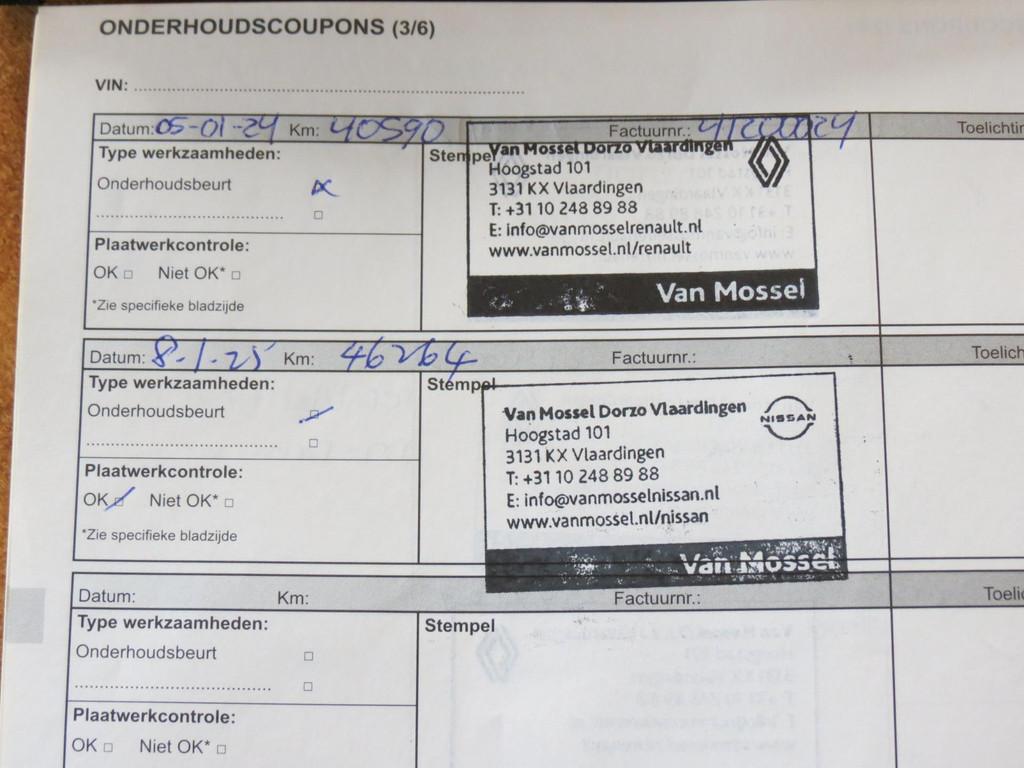 ONDERHOUDSCOUPONS (3/6)
VIN:
Datum: 05-01-24 Km: 40590 Factuurnr.: Toelichtin
Type werkzaamheden:
Stempel
Onderhoudsbeurt
Plaatwerkcontrole:
OK □ Niet OK* □
*Zie specifieke bladzijde
Van Mossel Dorzo Vlaardingen
Hoogstad 101
3131 KX Vlaardingen
T: +31 10 248 89 88
E: info@vanmosselrenault.nl
www.vanmossel.nl/renault
Van Mossel
Datum: 8-1-25 Km: 46264 Factuurnr.: Toelich
Type werkzaamheden:
Stempel
Onderhoudsbeurt
Plaatwerkcontrole:
OK Niet OK* □
*Zie specifieke bladzijde
Van Mossel Dorzo Vlaardingen
NISSAN
Hoogstad 101
3131 KX Vlaardingen
T: +31 10 248 89 88
E: info@vanmosselnissan.nl
www.vanmossel.nl/nissan
Van Mossel
Datum: Km: Factuurnr.: Toelic
Type werkzaamheden:
Stempel
Onderhoudsbeurt □
Plaatwerkcontrole:
OK □ Niet OK* □